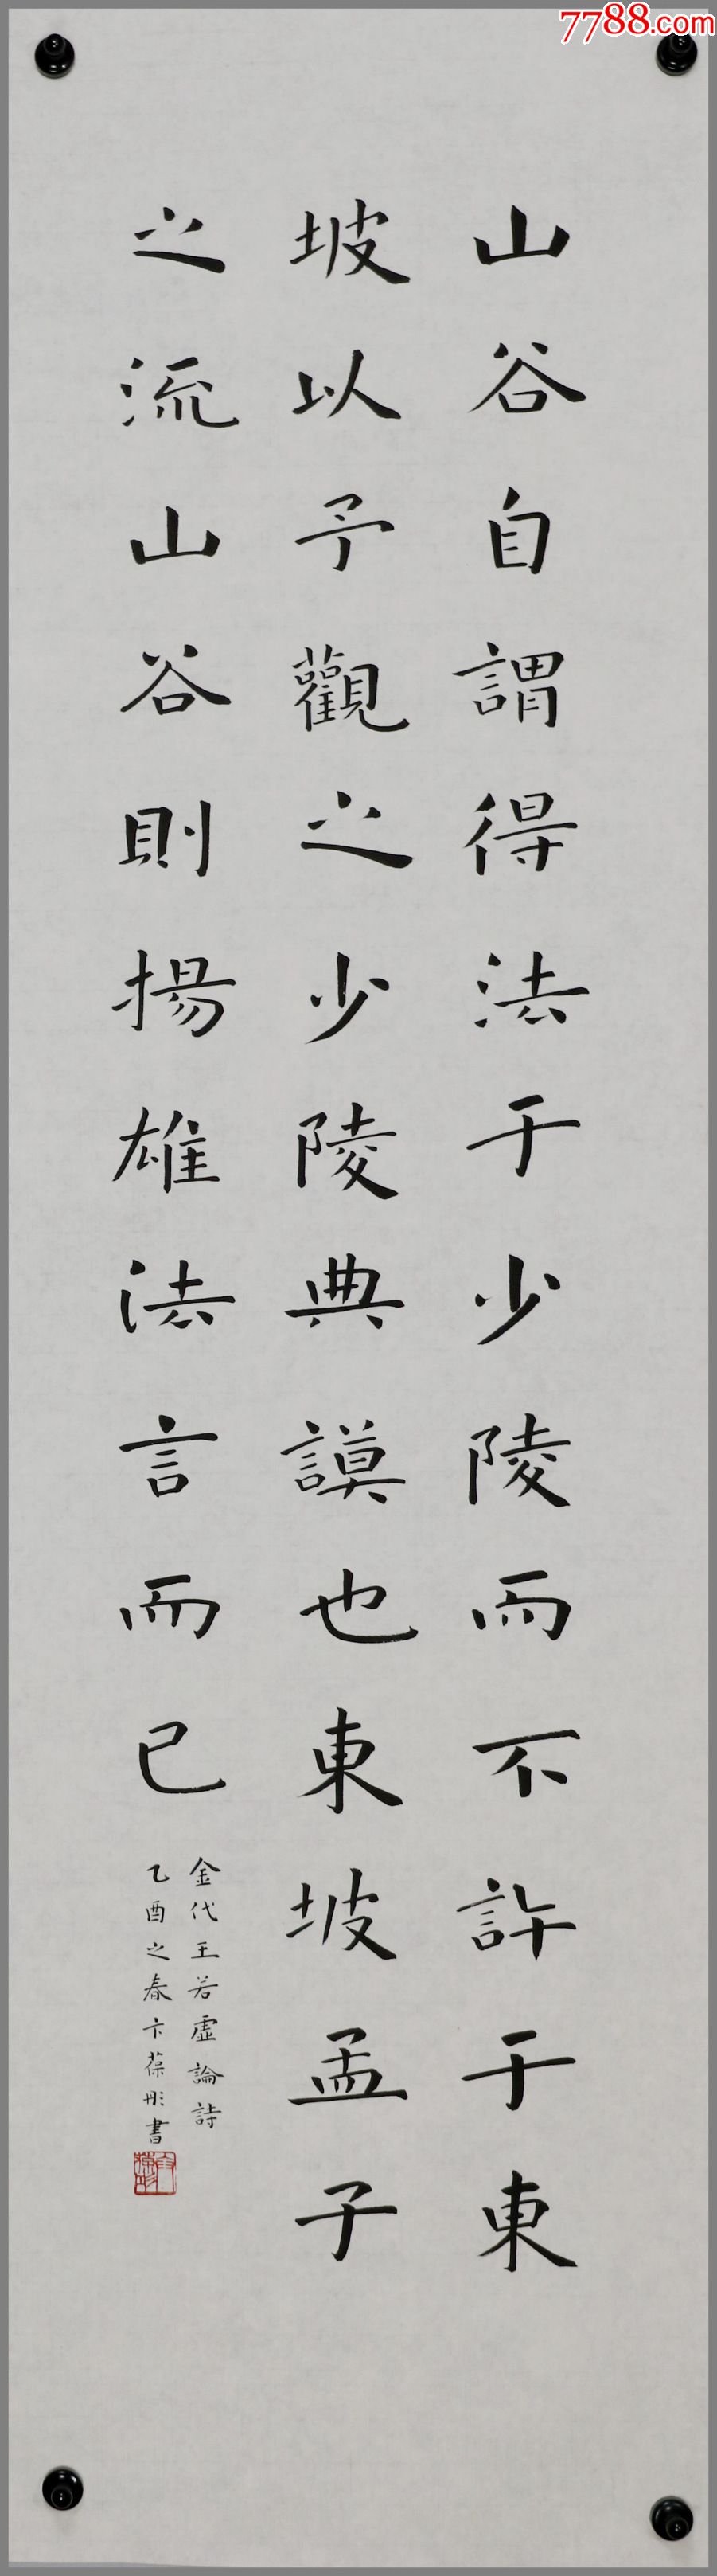 7788.com
山谷自謂得法于少陵而不許于東
坡以予觀之少陵典謨也東坡孟子
之流山谷則揚雄法言而已
金代王若虛論詩
乙酉之春卞葆彤書